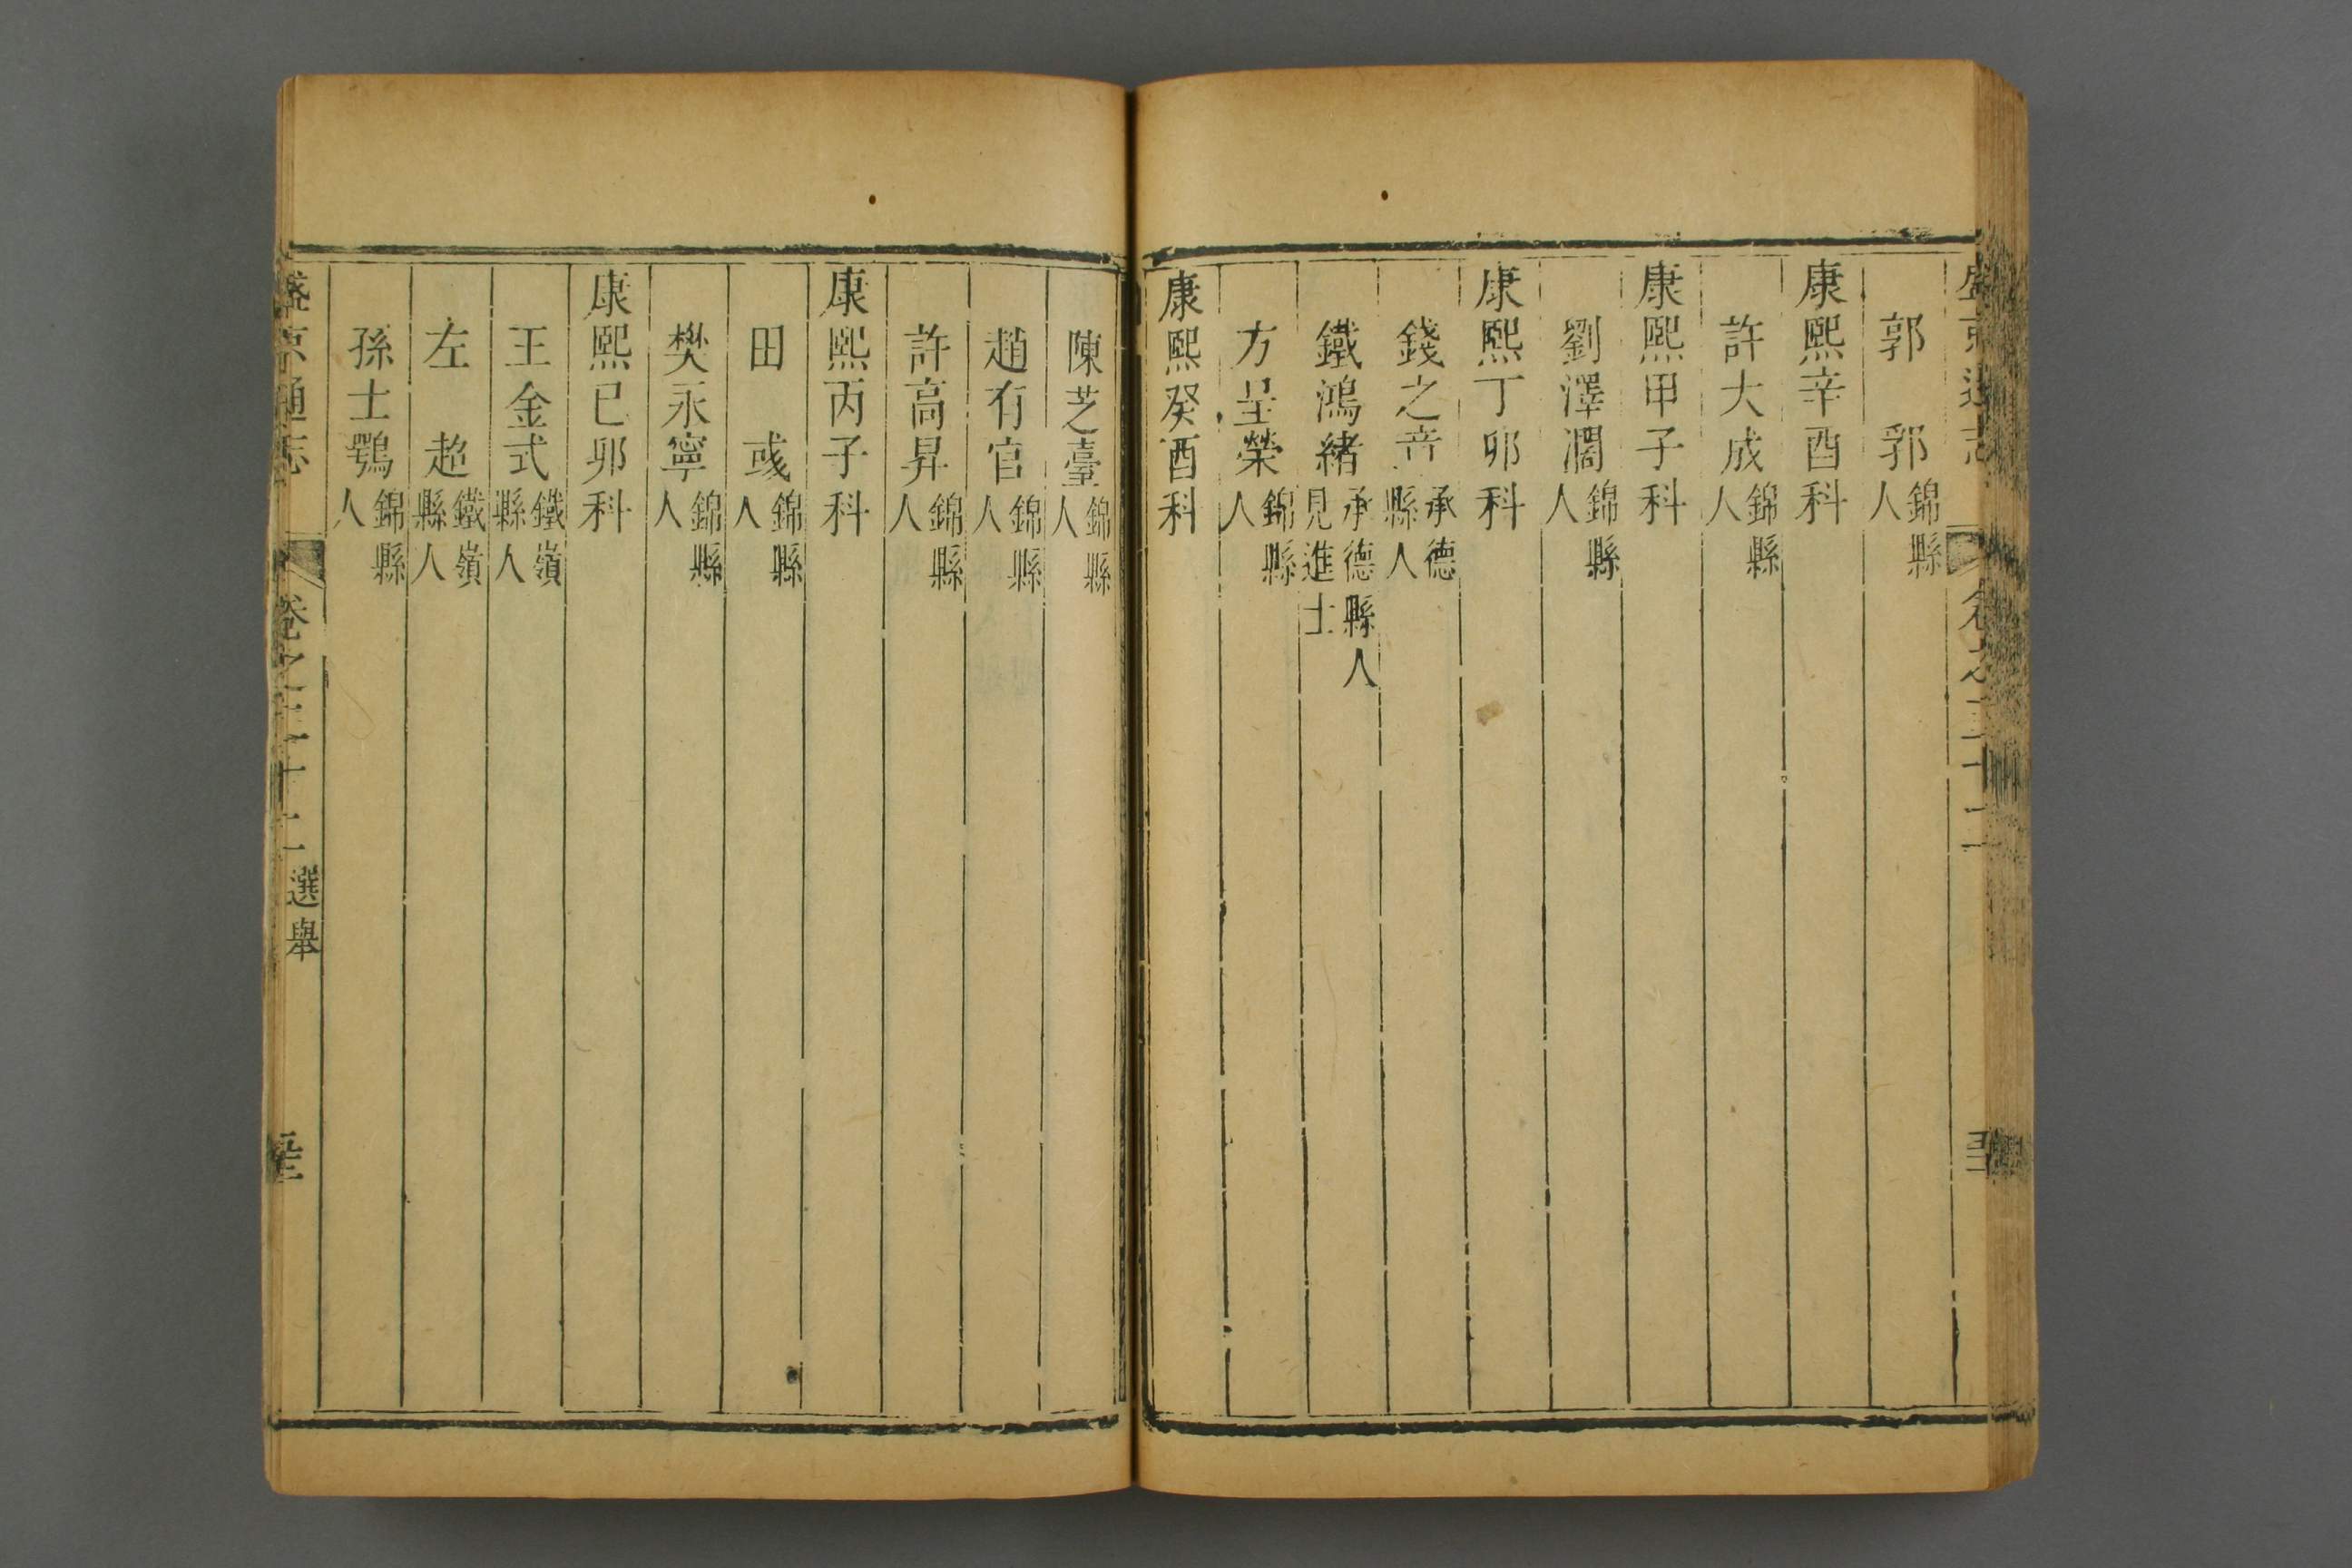 郭　郛錦縣人
康熙辛酉科
許大成錦縣人
康熙甲子科
劉澤濶錦縣人
康熙丁卯科
錢之音承德縣人
鐵鴻緒承德縣人見進士
方呈榮錦縣人
康熙癸酉科
陳芝臺錦縣人
趙有官錦縣人
許高昇錦縣人
康熙丙子科
田　彧錦縣人
樊永寧錦縣人
康熙已卯科
王金式鐵嶺縣人
左　超鐵嶺縣人
孫士鶚錦縣人
盛京通志　卷之三十二選舉